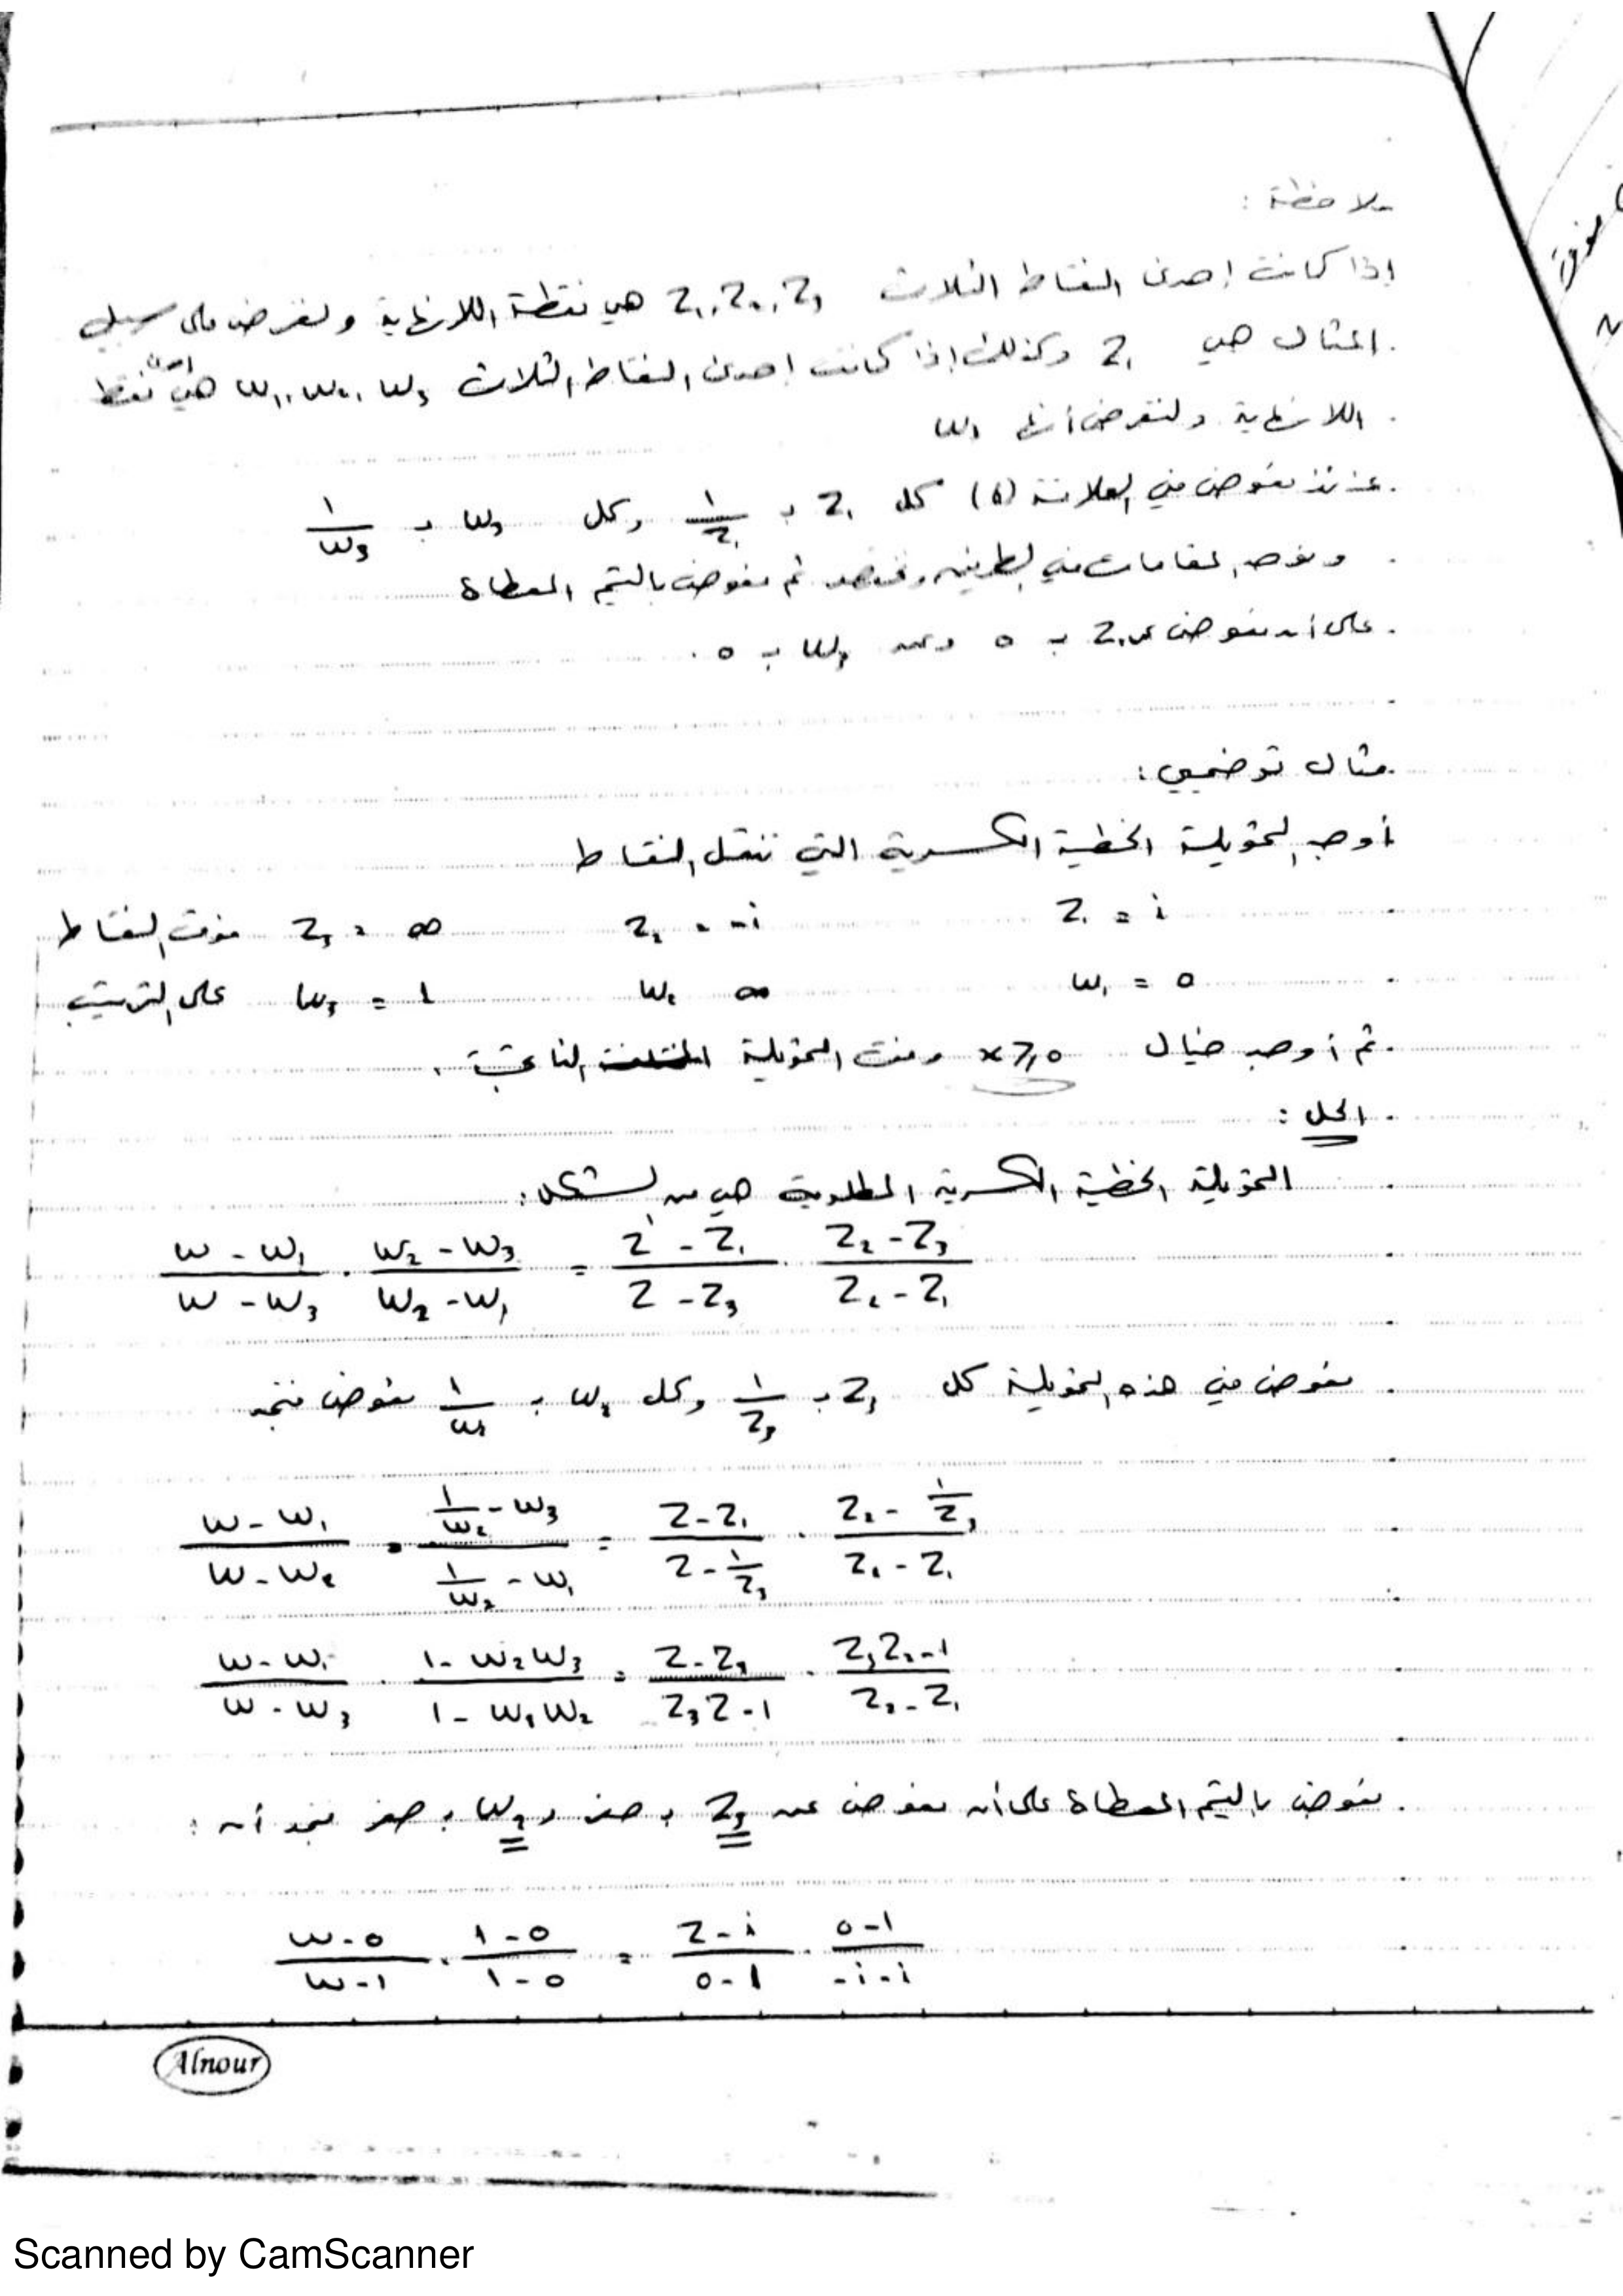 ملاحظة :
إذا كانت إحدى النقاط الثلاث z₁, z₂, z₃ هي نقطة اللانهاية ولنفرض على سبيل
المثال هي z₁ وكذلك إذا كانت إحدى النقاط الثلاث w₁, w₂, w₃ هي نقطة
اللانهاية ولنفرض أنها w₃
عندئذ نعوض في العلاقة (6) كل z₁ بـ 1/z₁ وكل w₃ بـ 1/w₃
ونوحد المقامات في الطرفين ونختصر ثم نعوض بالقيم المعطاة
على أن نعوض عن z₁ بـ 0 وعن w₃ بـ 0 .
مثال توضيحي :
أوجد التحويلة الخطية الكسرية التي تنقل النقاط
z₁ = i z₂ = -i z₃ = ∞ فوق النقاط
w₁ = 0 w₂ ∞ w₃ = 1 على الترتيب
ثم أوجد خيال x ≥ 0 وفق التحويلة الناتجة .
الحل :
التحويلة الخطية الكسرية المطلوبة هي من الشكل :
(w - w₁)/(w - w₃) · (w₂ - w₃)/(w₂ - w₁) = (z - z₁)/(z - z₃) · (z₂ - z₃)/(z₂ - z₁)
نعوض في هذه التحويلة كل z₃ بـ 1/z₃ وكل w₂ بـ 1/w₂ نعوض فنجد
(w - w₁)/(w - w₂) · (1/w₂ - w₃)/(1/w₂ - w₁) = (z - z₁)/(z - 1/z₃) · (z₂ - 1/z₃)/(z₂ - z₁)
(w - w₁)/(w - w₃) · (1 - w₂w₃)/(1 - w₁w₂) = (z - z₁)/(z₃z - 1) · (z₃z₂ - 1)/(z₂ - z₁)
نعوض بالقيم المعطاة على أن نعوض عن z₃ بـ صفر و w₂ بـ صفر نجد أن :
(w - 0)/(w - 1) · (1 - 0)/(1 - 0) = (z - i)/(0 - 1) · (0 - 1)/(-i - i)
Alnour
Scanned by CamScanner